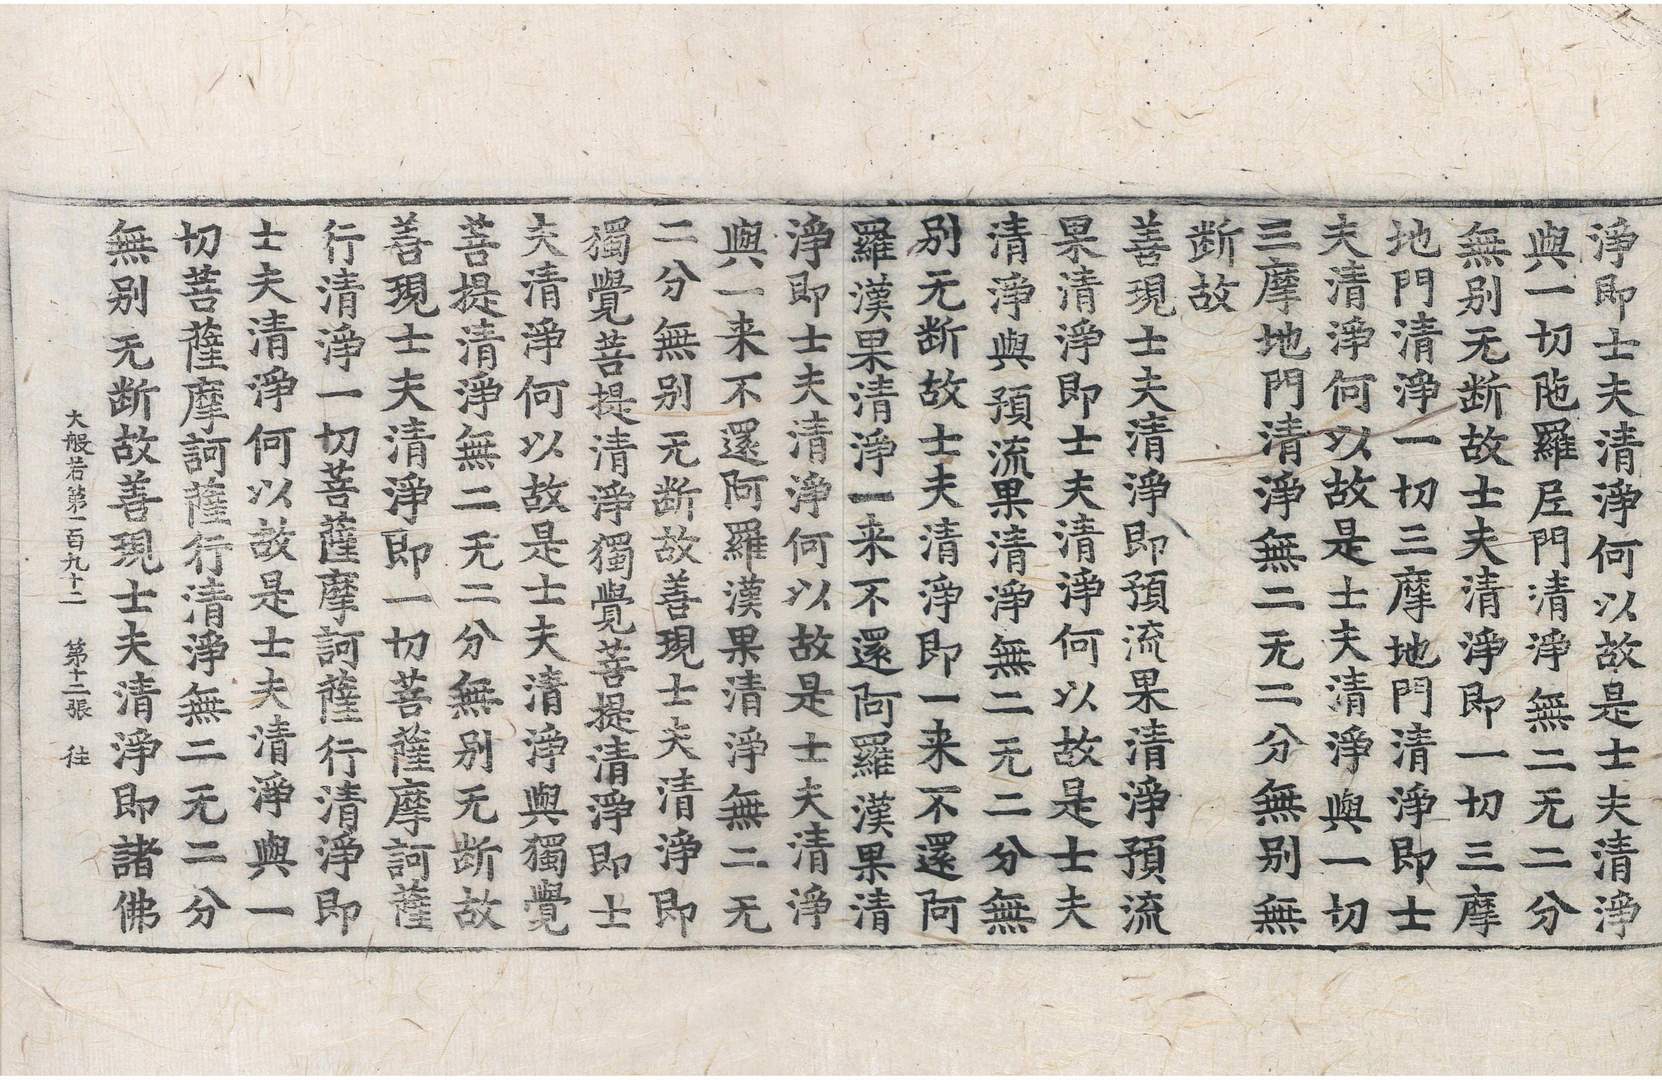 淨即士夫清淨何以故是士夫清淨
與一切陁羅尼門清淨無二无二分
無别无断故士夫清淨即一切三摩
地門清淨一切三摩地門清淨即士
夫清淨何以故是士夫清淨與一切
三摩地門清淨無二无二分無别無
断故
善現士夫清淨即預流果清淨預流
果清淨即士夫清淨何以故是士夫
清淨與預流果清淨無二无二分無
别无断故士夫清淨即一来不還阿
羅漢果清淨一来不還阿羅漢果清
淨即士夫清淨何以故是士夫清淨
與一来不還阿羅漢果清淨無二无
二分無别无断故善現士夫清淨即
獨覺菩提清淨獨覺菩提清淨即士
夫清淨何以故是士夫清淨與獨覺
菩提清淨無二无二分無别无断故
善現士夫清淨即一切菩薩摩訶薩
行清淨一切菩薩摩訶薩行清淨即
士夫清淨何以故是士夫清淨與一
切菩薩摩訶薩行清淨無二无二分
無别无断故善現士夫清淨即諸佛
大般若第一百九十二 第十二張 徃